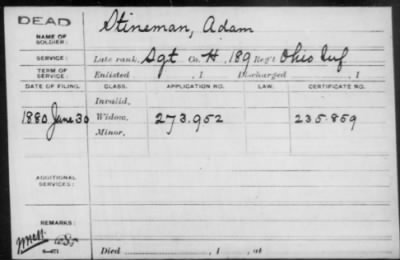 DEAD
NAME OF SOLDIER: Stineman, Adam
SERVICE: Late rank, Sgt Co. H, 189 Reg't Ohio Inf
TERM OF SERVICE: Enlisted , 1 Discharged , 1
DATE OF FILING. CLASS. APPLICATION NO. LAW. CERTIFICATE NO.
Invalid,
1880 June 30 Widow, 273.952 235.859
Minor,
ADDITIONAL SERVICES:
REMARKS:
Died , 1 , at